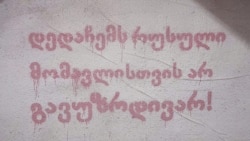 დედაჩემს რუსული
მომავლისთვის არ
გავუზრდივარ!